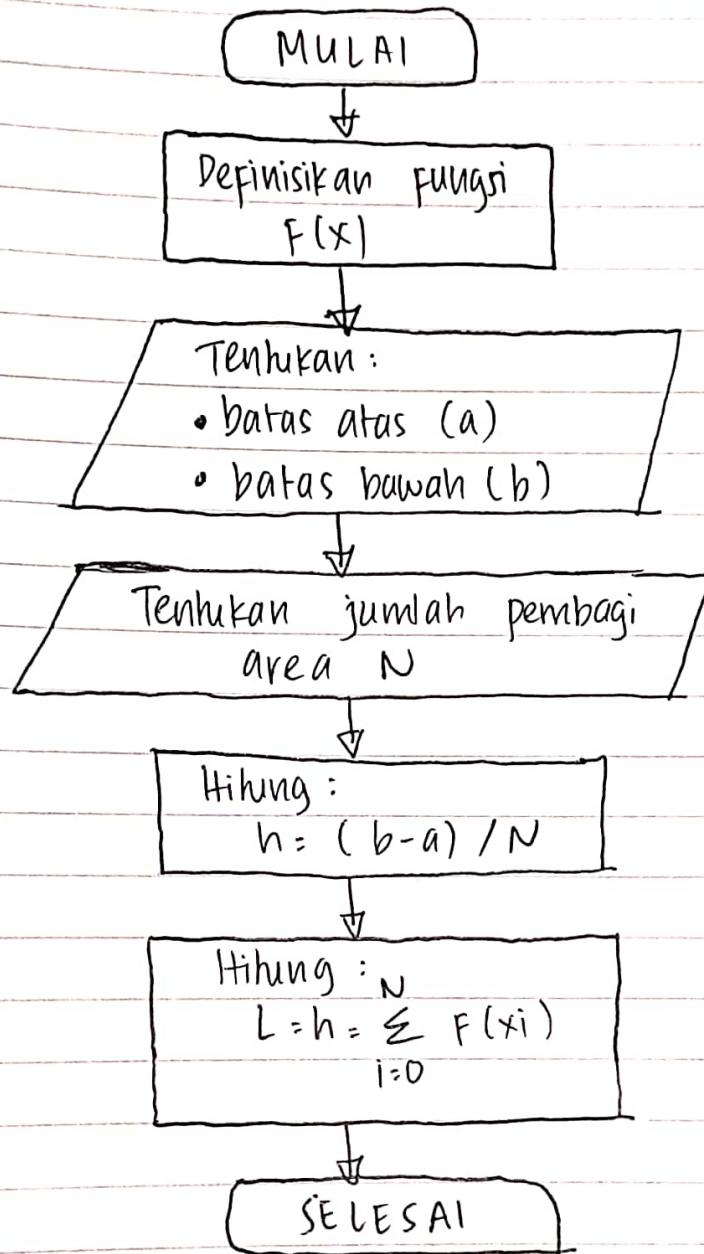 MULAI
Definisikan Fungsi
F(x)
Tentukan :
• batas atas (a)
• batas bawah (b)
Tentukan jumlah pembagi
area N
Hitung :
h = (b-a) / N
Hitung :
N
L = h = Σ F(xi)
i=0
SELESAI